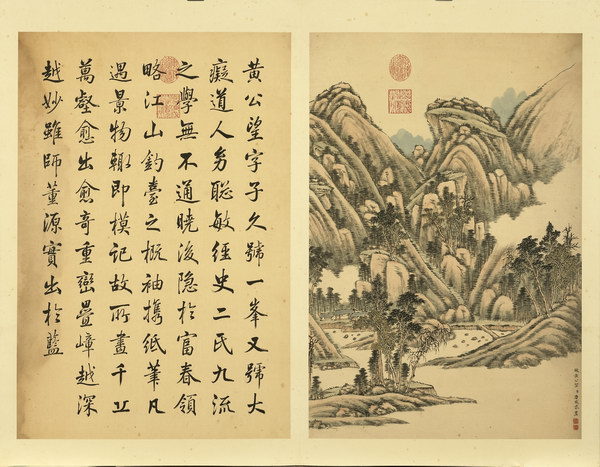 黄公望字子久號一峯又號大
癡道人多聰敏經史二氏九流
之學無不通曉後隐於富春領
略江山釣臺之概袖攜紙筆凡
遇景物輙即模記故所畫千丘
萬壑愈出愈奇重巒疊嶂越深
越妙雖師董源實出於藍